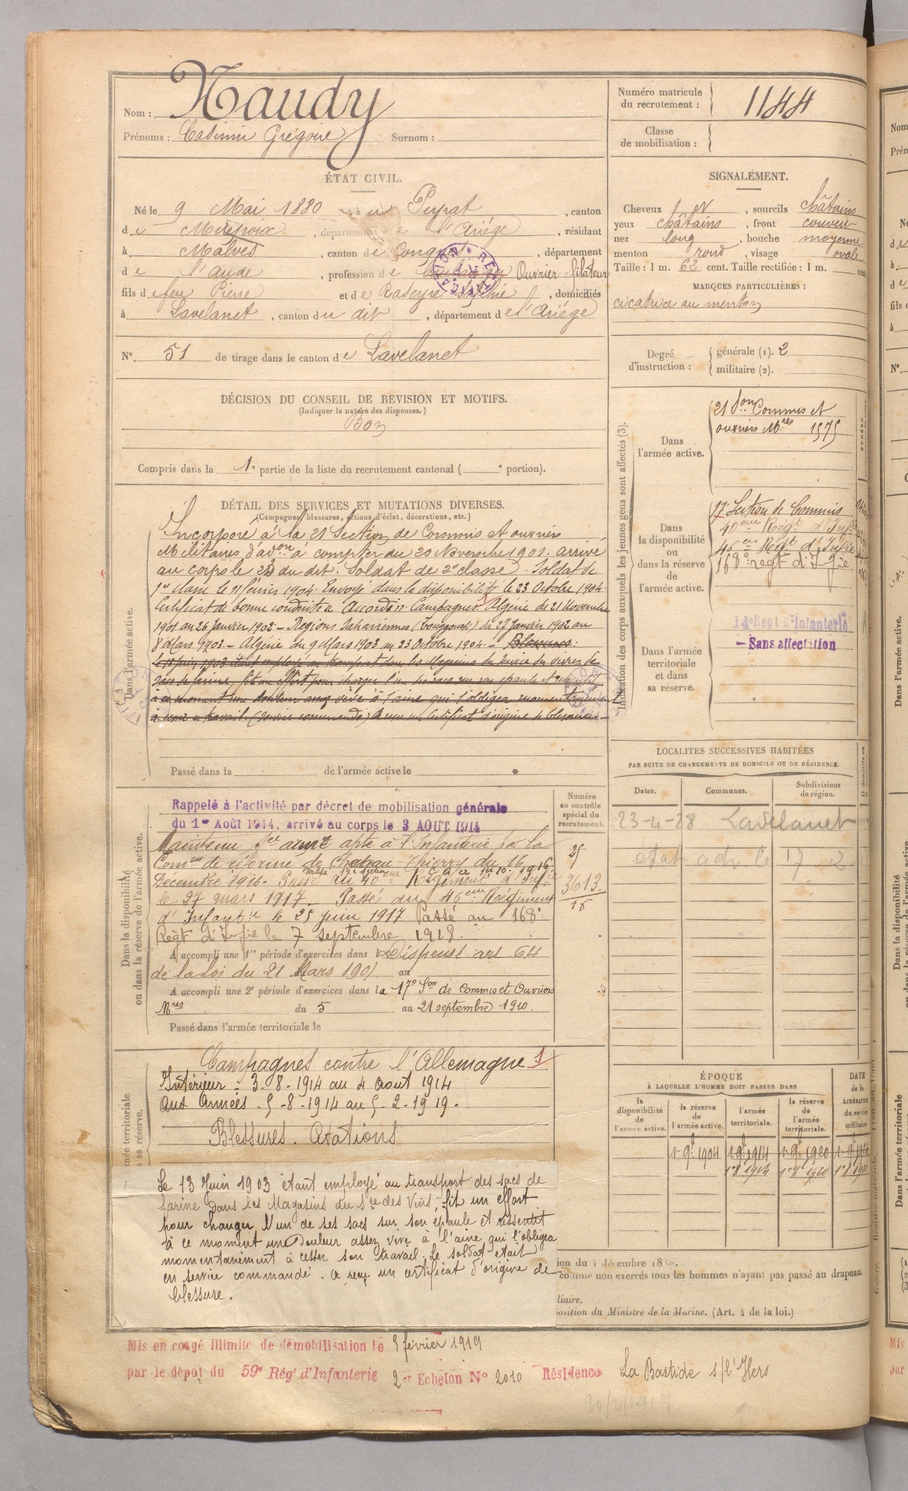 Nom : Naudy
Prénoms : Casimir Grégoire Surnom :
Numéro matricule du recrutement : 1144
Classe de mobilisation :
ÉTAT CIVIL.
Né le 9 Mai 1880 à Peyrat, canton
de Mirepoix, département de l'Ariège, résidant
à Malves, canton de Conques, département
de l'Aude, profession de Ouvrier fileur
fils de feu Pierre et de Rabeyre, domiciliés
à Lavelanet, canton du dit, département de l'Ariège
N° 51 de tirage dans le canton de Lavelanet
SIGNALEMENT.
Cheveux N, sourcils châtains
yeux châtains, front couvert
nez long, bouche moyenne
menton rond, visage ovale
Taille : 1 m. 62 cent. Taille rectifiée : 1 m. cent.
MARQUES PARTICULIÈRES :
cicatrice au menton
Degré d'instruction : générale (1). 2
militaire (2).
DÉCISION DU CONSEIL DE REVISION ET MOTIFS.
(Indiquer la nature des dispenses.)
Bon
Compris dans la 1e partie de la liste du recrutement cantonal ( e portion).
DÉTAIL DES SERVICES ET MUTATIONS DIVERSES.
(Campagnes, blessures, actions d'éclat, décorations, etc.)
Dans l'armée active.
Incorporé à la 21 Section de Commis et ouvriers
Militaires d'adon à compter du 20 Novembre 1901. arrivé
au corps le 23 du dit. Soldat de 2e classe. Soldat de
1re classe le 11 février 1904. Envoyé dans la disponibilité le 23 Octobre 1904.
Certificat de bonne conduite "Accordé". Campagnes Algérie du 21 Novembre
1901 au 26 Janvier 1902 – Régions Sahariennes (Touggourt) du 27 Janvier 1902 au
8 Mars 1903 – Algérie du 9 Mars 1903 au 23 Octobre 1904 – Blessures:
à ce moment une douleur assez vive à l'aine qui l'obligea momentanément
Passé dans la de l'armée active le
Indication des corps auxquels les jeunes gens sont affectés (3).
Dans l'armée active.
21 Son Commis et
ouvriers Mres 1575
Dans la disponibilité ou dans la réserve de l'armée active.
17e Section de Commis
40eme Régt d'Infie
46eme Régt d'Infie
168e régt d'Infie
Dans l'armée territoriale et dans sa réserve.
Régt d'Infanterie
– Sans affectation
LOCALITÉS SUCCESSIVES HABITÉES
PAR SUITE DE CHANGEMENTS DE DOMICILE OU DE RÉSIDENCE.
Dates. Communes. Subdivisions de région.
23-4-28 Lavelanet
Dans la disponibilité ou dans la réserve de l'armée active.
Rappelé à l'activité par décret de mobilisation générale
du 1er Août 1914, arrivé au corps le 3 AOUT 1914
Numéro au contrôle spécial du recrutement.
3613
Maintenu Sce armé apte à l'Infanterie par la
Comon de réforme de Chateau-Thierry du 16
Décembre 1916. Passé au 40e Régiment d'Infie
le 27 mars 1917. Passé du 46eme Régiment
d'Infantie le 25 juin 1917 Passé au 168e
Régt d'Infie le 7 septembre 1918.
A accompli une 1re période d'exercices dans l Dispensé art 64
de la loi du 21 Mars 1905 au
A accompli une 2e période d'exercices dans la 17e Son de Commis et Ouvriers
Mres du 5 au 21 septembre 1910.
Passé dans l'armée territoriale le
Campagnes contre l'Allemagne 1
Intérieur : 3-8-1914 au 4 Aout 1914
Aux Armées . 5-8-1914 au 5-2-1919.
Blessures. Citations
Le 13 Juin 1903 étant employé au transport des sacs de
farine dans les Magasins du Sce des Vivres, fit un effort
pour charger l'un de ses sacs sur son épaule et ressentit
à ce moment une douleur assez vive à l'aine qui l'obligea
momentanément à cesser son travail. Le soldat était
en service commandé. a reçu un certificat d'origine de
blessure.
ÉPOQUE
À LAQUELLE L'HOMME DOIT PASSER DANS
la disponibilité de l'armée active.
la réserve de l'armée active.
l'armée territoriale.
la réserve de l'armée territoriale.
DATE de la LIBÉRATION du service militaire.
comme non exercés tous les hommes n'ayant pas passé au drapeau.
osition du Ministre de la Marine. (Art. 4 de la loi.)
Mis en congé illimité de démobilisation le 5 février 1919
par le dépôt du 59e Régt d'Infanterie 2e Echelon No 2010 Résidence La Bastide s/l'Hers